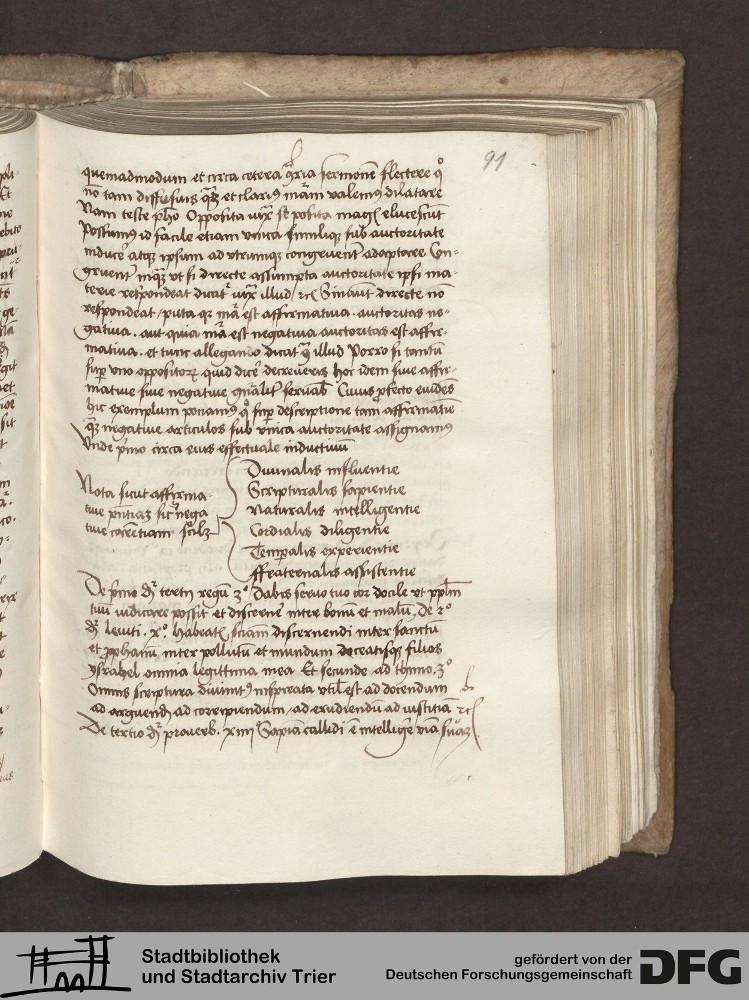 91
quemadmodum et circa cetera q̄ria sermonē flectere q°
nō tam diffusius qz et clariꝯ mām valemꝯ dilatare
Nam teste pho Opposita iuxᵃ se posita magꝭ elucescūt
Possumꝯ id facile etiam vnica similiqꝫ sub auctoritate
inducē atqꝫ ipsum ad vtrumqꝫ congruent adaptare Con-
gruent inqz vt si directe assumpta auctoritate ipsi ma-
terie respondeat dicat iuxᵃ illud / rc Sin aut directe nō
respondeat / puta qz mā est affirmatiua . auctoritas ne-
gatiua . aut quia mā est negatiua auctoritas est affir-
matiua . et tunc allegando dicat illud Porro si tantū
sup vno oppositoꝝ quid dicē decreueris hoc idem siue affir-
matiue siue negatiue gnalit seruabꝭ Cuius pfecto euidēs
hic exemplum ponamꝯ q° sup descriptione tam affirmatiue
qz negatiue articulos sub vnica auctoritate assignamꝯ
Vnde pmo circa eius effectuale inductiuū
Nota sicut affirma-
tiue sic nega
tiue carētiam scilz
Diuinalis influentie
Scripturalis sapientie
Naturalis intelligentie
Cordialis diligentie
Temporalis experientie
ffraternalis assistentie
De pmo dr tertij regū 3° Dabis seruo tuo cor docile vt pplm
tuū iudicare possit et discernē inter bonū et malū, De 2°
dr leuiti . x°. Habeatꝭ sciam discernendi inter sanctū
et pphanū inter pollutū et mundum doceatisqꝫ filios
ysrahel omnia legittima mea Et secunde ad thimo. 3°
Omnis scriptura diuinitꝯ inspirata vtil est ad docendum
ad arguendū ad corripiendum / ad erudiendū ad iustitiā rc
De tertio dr prouerb. xiiij Sapiā callidi ē intelligē viā suā
Stadtbibliothek
und Stadtarchiv Trier
gefördert von der
Deutschen Forschungsgemeinschaft
DFG